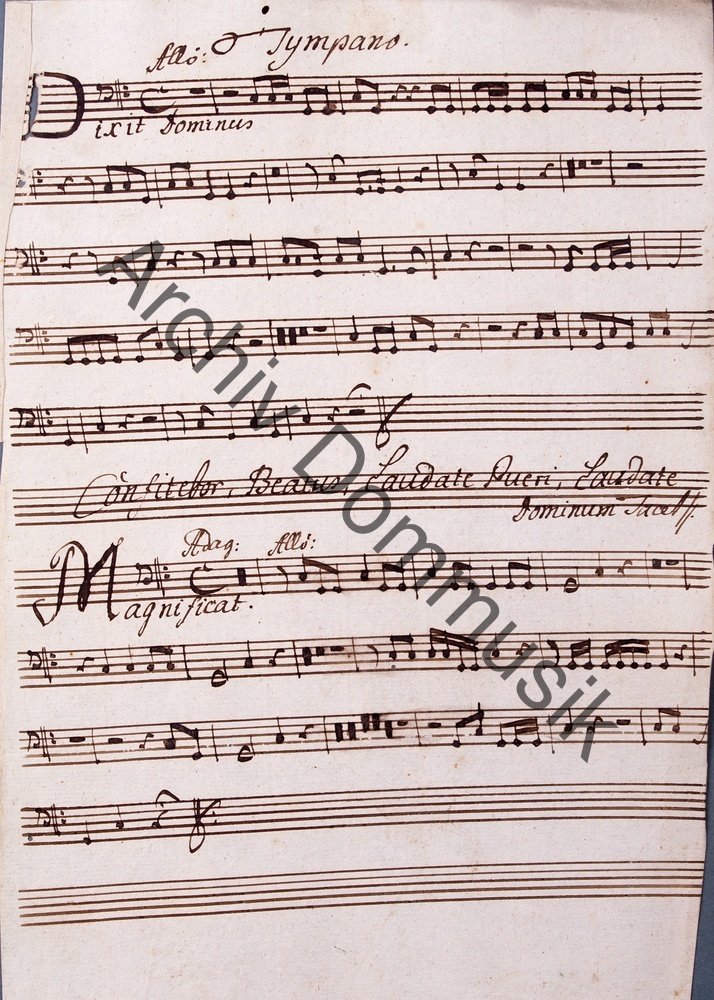 Tympano.
Allo:
Dixit Dominus
Confitebor, Beatus, Laudate Pueri, Laudate
Dominum Tacet
Adag: Allo:
Magnificat.
Archiv Dommusik